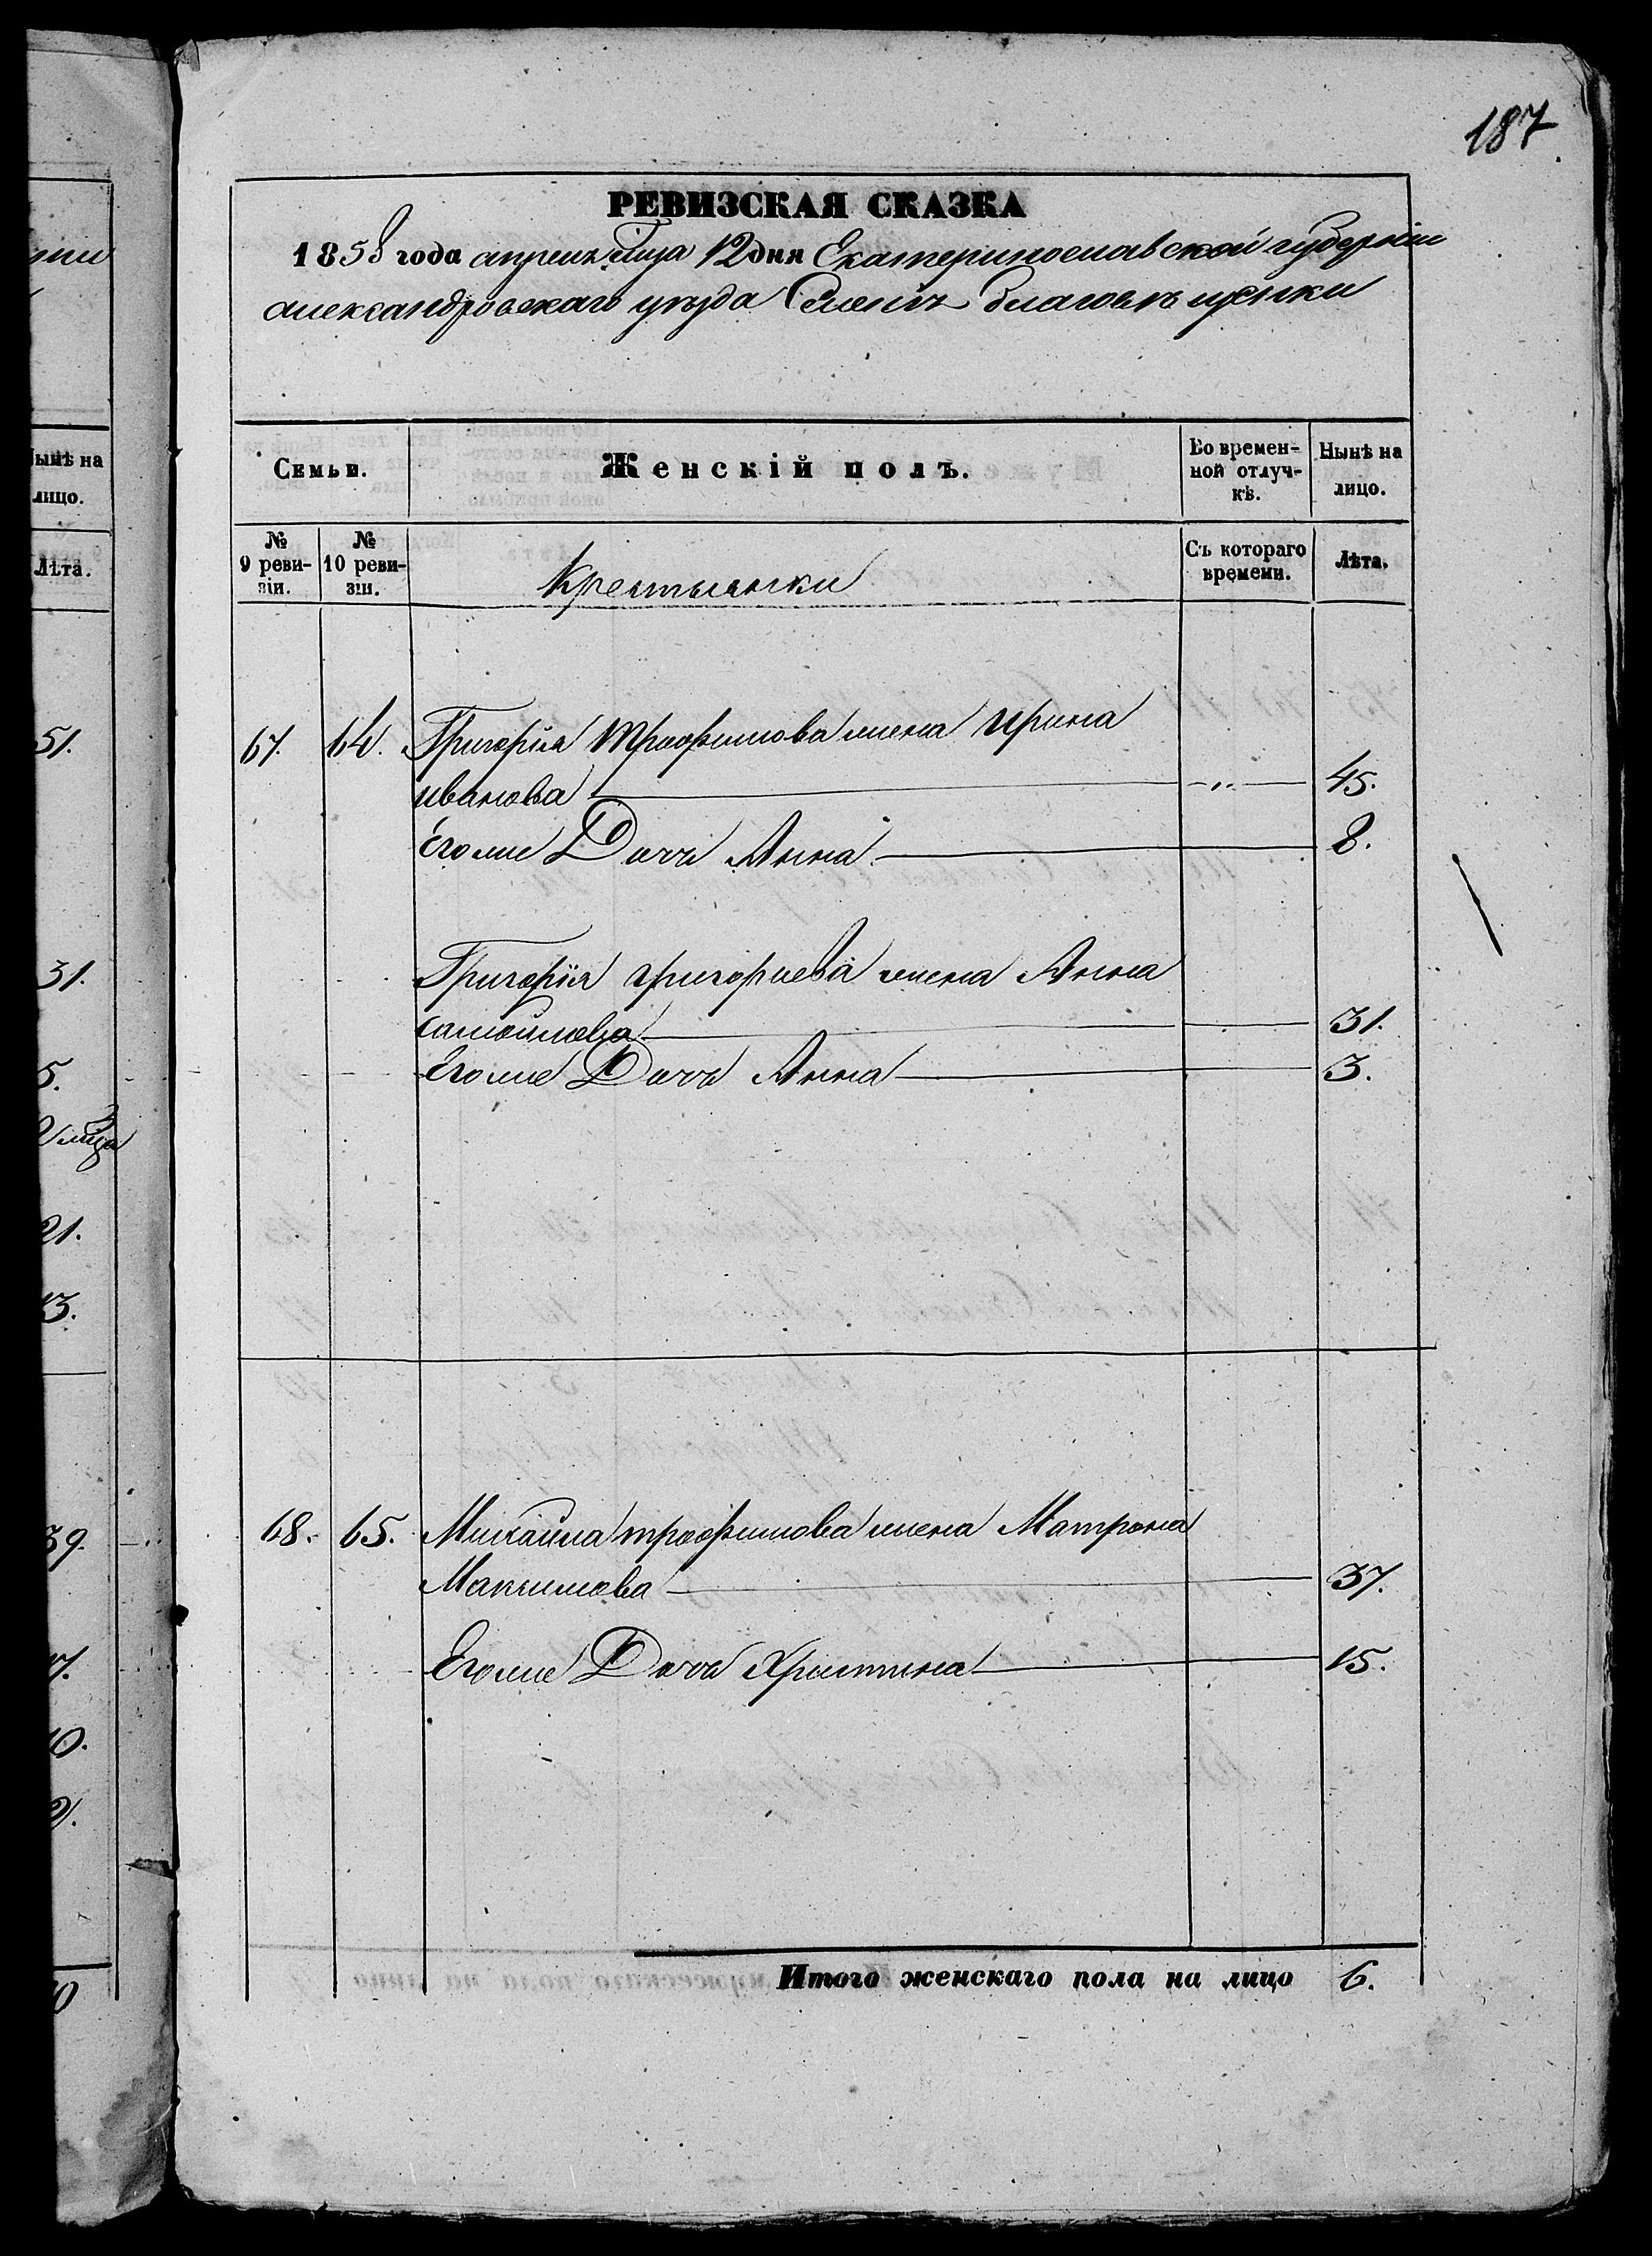 187
РЕВИЗСКАЯ СКАЗКА
1858 года апреля мца 12 дня Екатеринославской губернiи
александровскаго уѣзда Благовѣщенки
Семьи. Женскій полъ. Во времен-ной отлуч-кѣ. Нынѣ на лицо.
№ 9 реви-зіи. № 10 реви-зіи. Крестьянки Съ котораго времени. Лѣта.
67. 64. Григорія трофимова жена Ирина
иванова 45.
Его же Дочь Анна 8.
Григорія григориева жена Анна
самойлова 31.
Его же Дочь Анна 3.
68. 65. Михаила трофимова жена Матрона
Максимова 37.
Его же Дочь Христина 15.
Итого женскаго пола на лицо 6.
ынѣ на
лицо.
Лѣта.
51.
31.
5.
21.
13.
39.